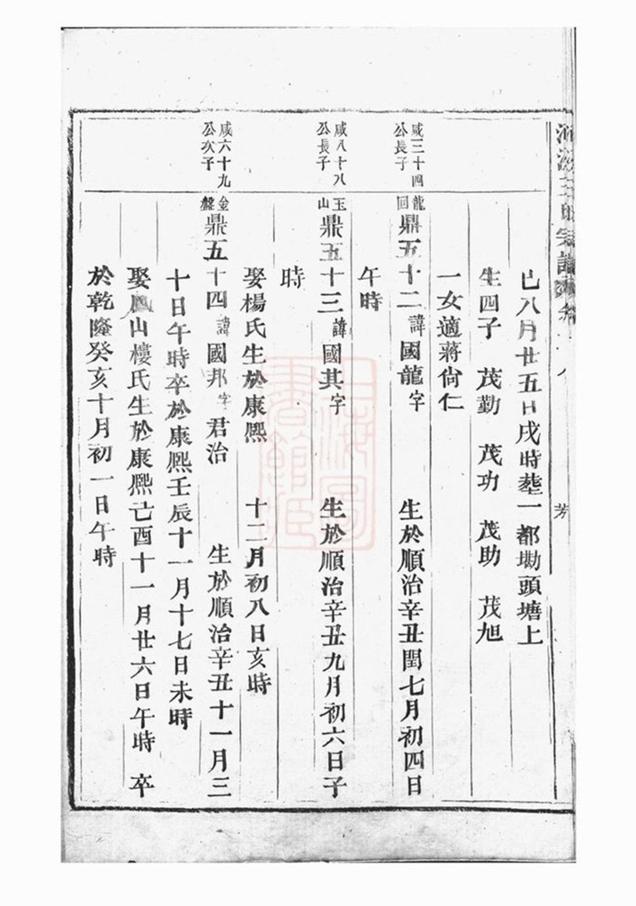 巳八月廿五日戌時塟一都坳頭塘上
生四子 茂勤 茂功 茂助 茂旭
一女適蔣尙仁
咸三十四公長子
龍回鼎五十二諱國龍字 生於順治辛丑閏七月初四日
午時
咸八十八公長子
玉山鼎五十三諱國其字 生於順治辛丑九月初六日子
時
娶楊氏生於康熙 十二月初八日亥時
咸六十九公次子
金盤鼎五十四諱國邦字君治 生於順治辛丑十一月三
十日午時卒於康熙壬辰十一月十七日未時
娶鳳山樓氏生於康熙己酉十一月廿六日午時 卒
於乾隆癸亥十月初一日午時